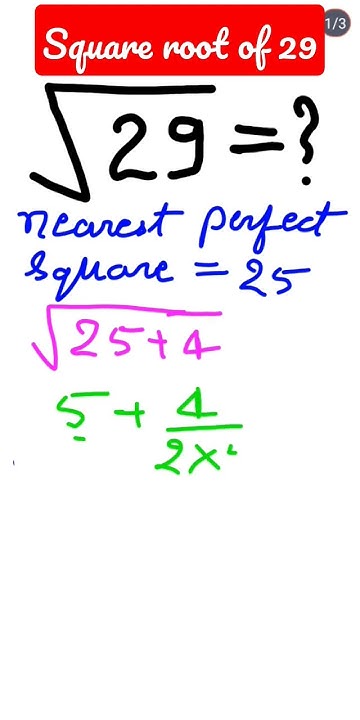 Square root of 29
1/3
√29 = ?
nearest perfect
square = 25
√25+4
5 + 4
2×